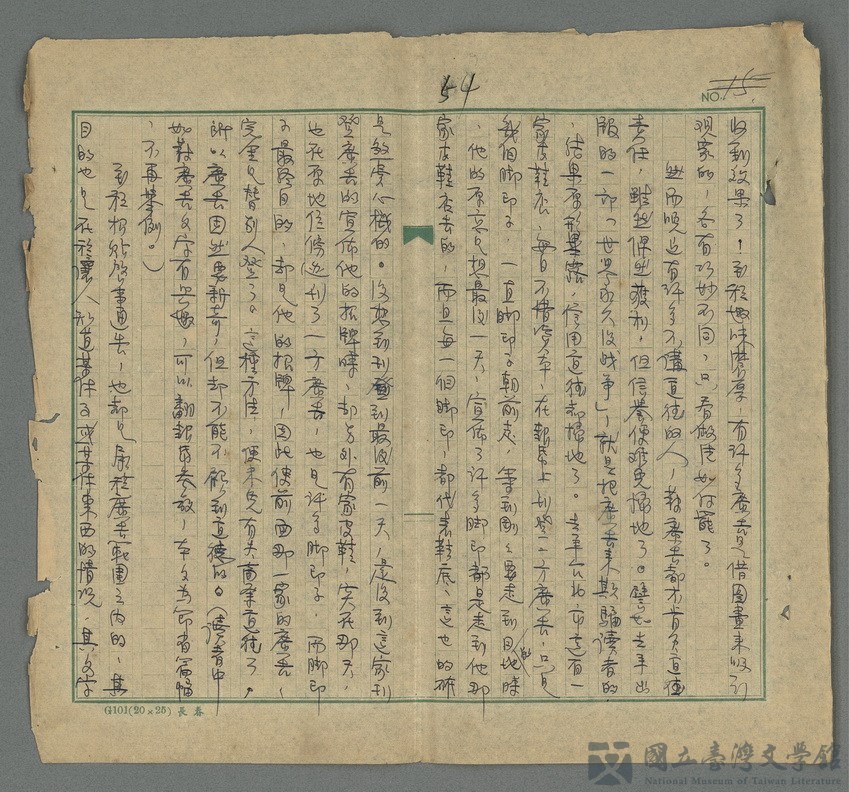 54
NO. 15
收到效果了!至於趣味濃厚,有許多廣告是借圖畫來吸引
觀衆的,各有巧妙不同,只看做法如何罷了。
然而晚近有許多不講道德的人,對廣告都不肯負道德
責任,雖然偶然獲利,但信譽便難免掃地了。譬如去年出
版的一部「世界永久沒戰爭」,就是把廣告來欺騙讀者的
,結果原形畢露,信用道德却掃地了。去年台北市還有一
家皮鞋店,每日不惜資本,在報帋上刊登一方廣告,只見
幾個脚印子,一直脚印子朝前走,等到剛々要走到目地時
,他的原意是想最後一天,宣佈了許多脚印都是走到他那
家皮鞋店去的,而且每一個脚印,都代表鞋底,這也的確
是煞費心機的。沒想到刊登到最後前一天,還沒到這家刊
登廣告的宣佈他的招牌時,却另外有家皮鞋,突在那天,
也在原地位傍邊刊了一方廣告,也是許多脚印子,而脚印
子最終目的,却是他的招牌,因此使前面那一家的廣告,
完全是替別人登了。這種方法,便未免有失商業道德了。
所以廣告固然要新奇,但却不能不顧到道德的。(讀者中
如對廣告文字有興趣,可以翻報帋參攷,本文爲節省篇幅
,不再舉例。)
至於招貼啓事通告,也都是屬於廣告範圍之內的,其
目的也是在於讓人知道某件事或某件東西的情况,其文字
G101(20×25)長春
國立臺灣文學館
National Museum of Taiwan Literature